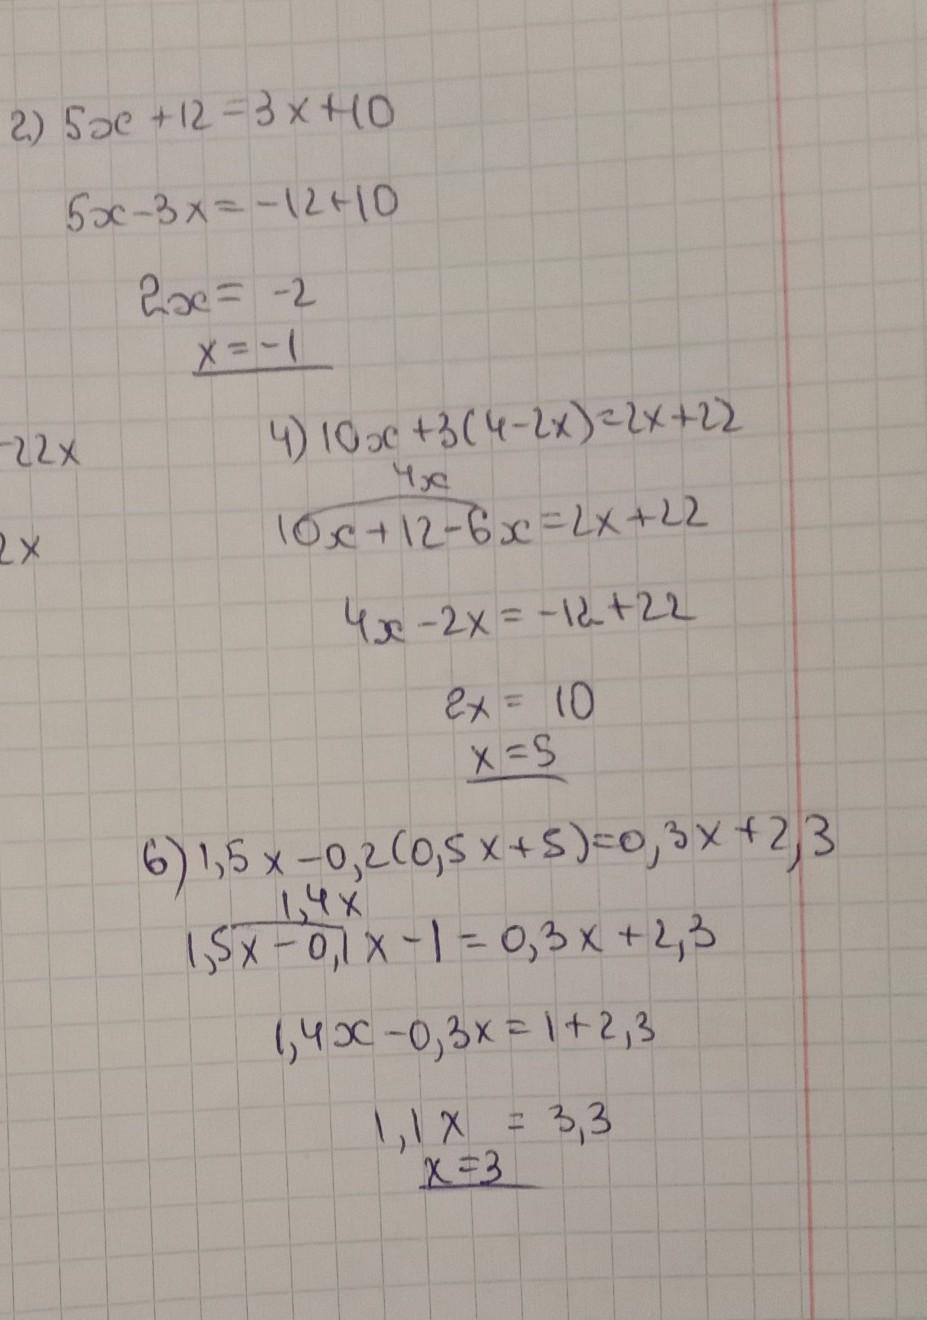 2) 5x + 12 = 3x + 10
5x - 3x = -12 + 10
2x = -2
x = -1
-22x
4) 10x + 3(4 - 2x) = 2x + 22
4x
10x + 12 - 6x = 2x + 22
2x
4x - 2x = -12 + 22
2x = 10
x = 5
6) 1,5x - 0,2(0,5x + 5) = 0,3x + 2,3
1,4x
1,5x - 0,1x - 1 = 0,3x + 2,3
1,4x - 0,3x = 1 + 2,3
1,1x = 3,3
x = 3